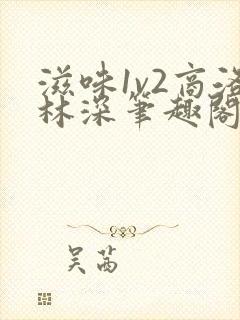 滋味1v2高洛
林深笔趣阁
吴茜